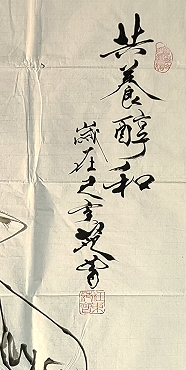 共養醇和
歲在己亥